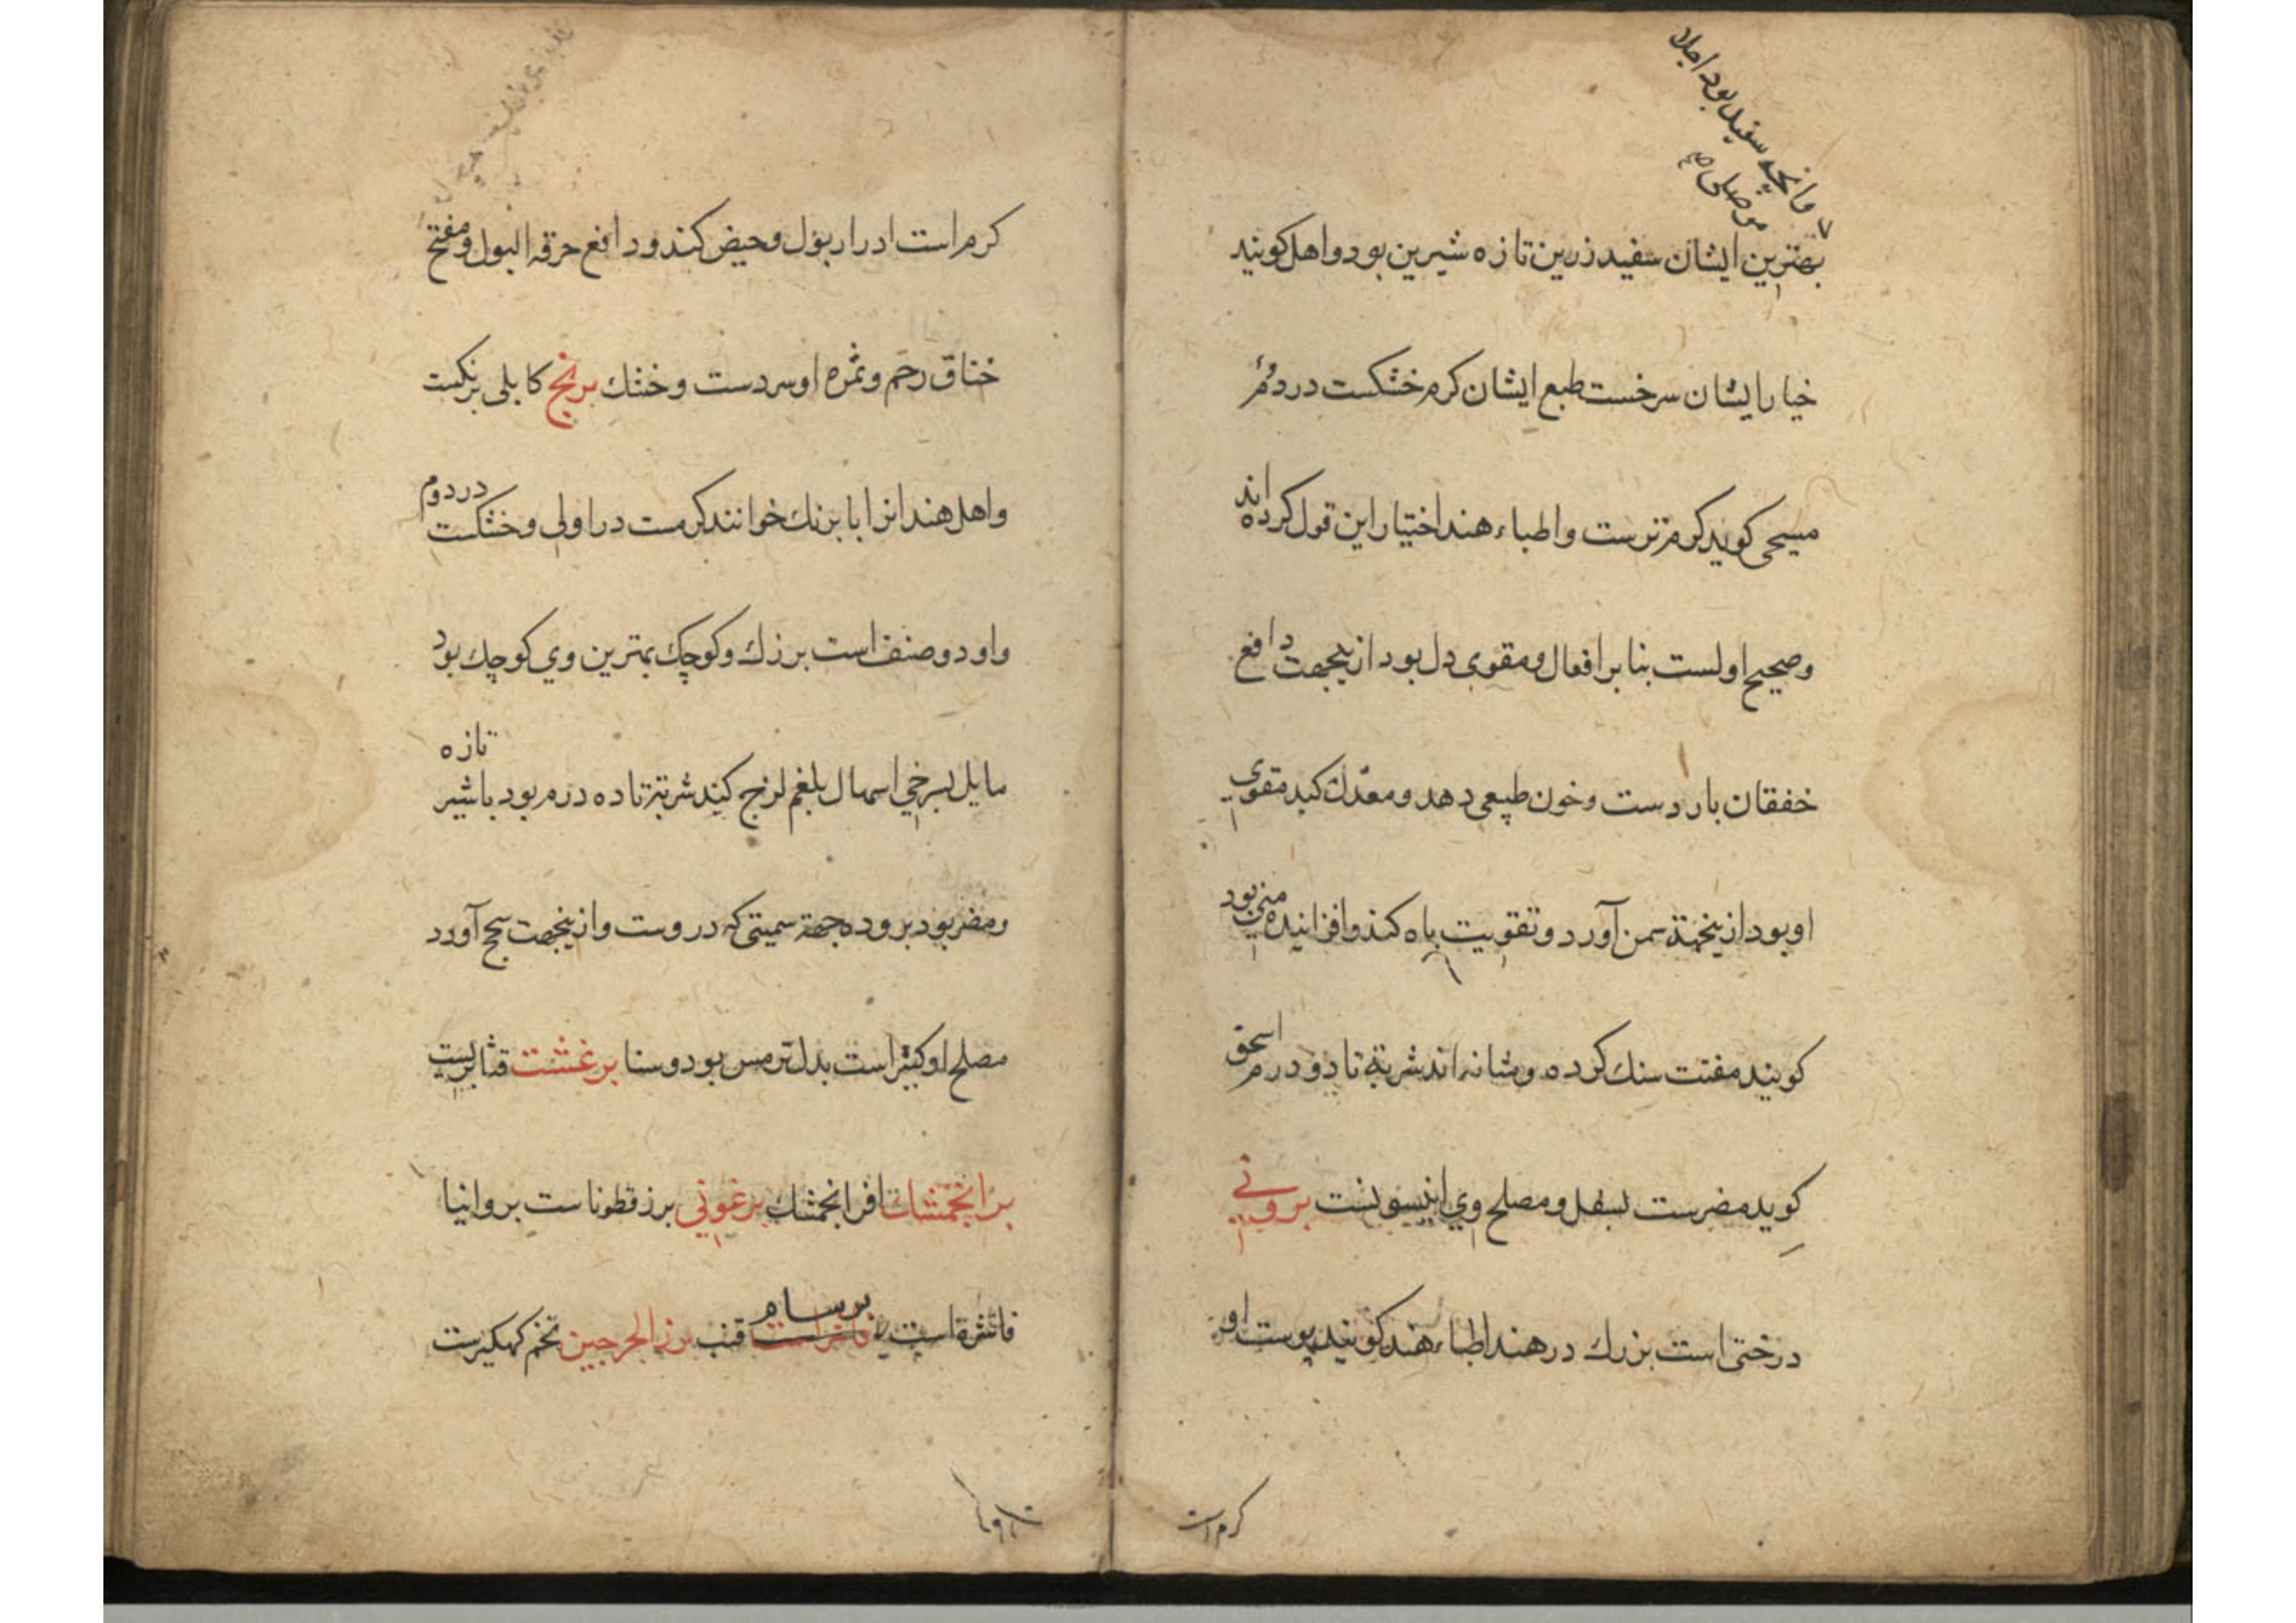 وانچه سفید بود اجلاد
موصلی
بهترین ایشان سفید زرین تازه شیرین بود و اهل کویند
خیار ایشان سرخست طبع ایشان کرم خشکست در دوم
مسیحی کوید کرم ترست و اطباء هند اختیار این قول کرده اند
و صحیح اولست بنابر افعال و مقوی دل بود ازینجهت دافع
خفقان باردست و خون طبیعی دهد و معدل کبد مقوی
او بود ازینجهتة سمن آورد و تقویت باه کند و افزاینده منی بود
کویند مفتت سنك کرده و مثانه اند شربتة تا دو درم اسحق
کوید مضرست بسفل و مصلح وي انیسونست برونی
درختی است بزرك در هند اطباء هند کویند پوست او
کرم است
کرم است ادرار بول و حیض کند و دافع حرقه البول و مفتح
خناق رحم و ثمره او سردست و خشك برنج کابلی برنکست
و اهل هند انرا بابرنك خوانند کرمست در اولی و خشکست در دوم
و او دو صنف است بزرك و کوچك بهترین وي کوچك بود
مایل بسرخي اسهال بلغم لزج کند شربتة تا ده درم بود باشیر تازه
و مضر بود بروده جهة سمیتی که دروست و ازینجهت سحج آورد
مصلح او کتیراست بدل ترمس بود و سنا برغشت قثابریست
برانجمشك افرانجمشك برغوني بزرقطوناست بروانیا
فاشقاست برسام قنب بزر الجرجین تخم کهکیزست